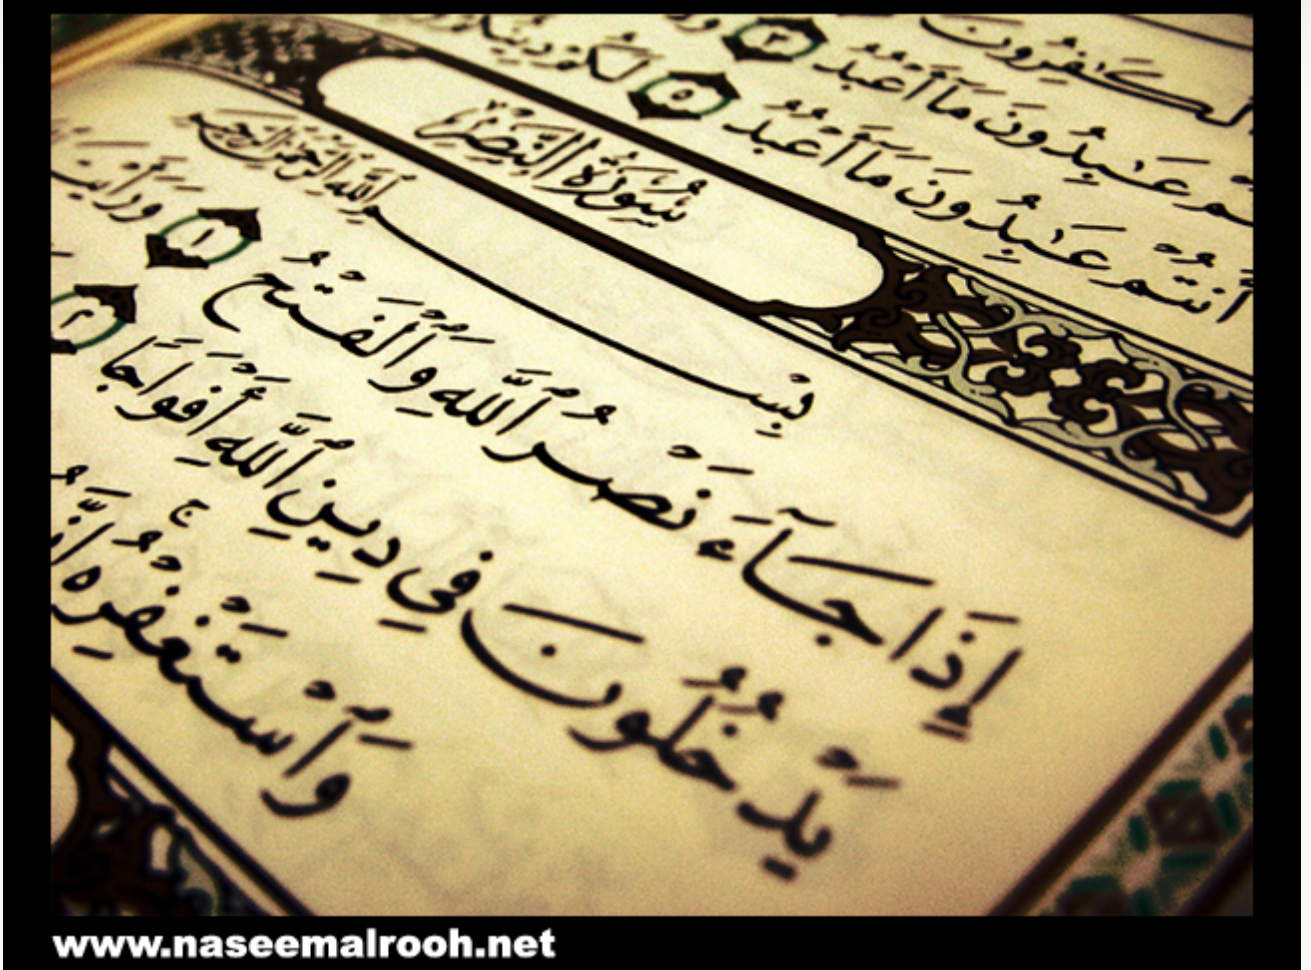 ٱلۡكَٰفِرُونَ
عَٰبِدُونَ مَآ أَعۡبُدُ ٣
أَنتُمۡ عَٰبِدُونَ مَآ أَعۡبُدُ ٥ لَكُمۡ دِينُكُمۡ
سُورَةُ النَّصۡرِ
بِسۡمِ ٱللَّهِ ٱلرَّحۡمَٰنِ ٱلرَّحِيمِ
إِذَا جَآءَ نَصۡرُ ٱللَّهِ وَٱلۡفَتۡحُ ١ وَرَأَيۡتَ
يَدۡخُلُونَ فِي دِينِ ٱللَّهِ أَفۡوَاجٗا ٢
وَٱسۡتَغۡفِرۡهُۚ
www.naseemalrooh.net